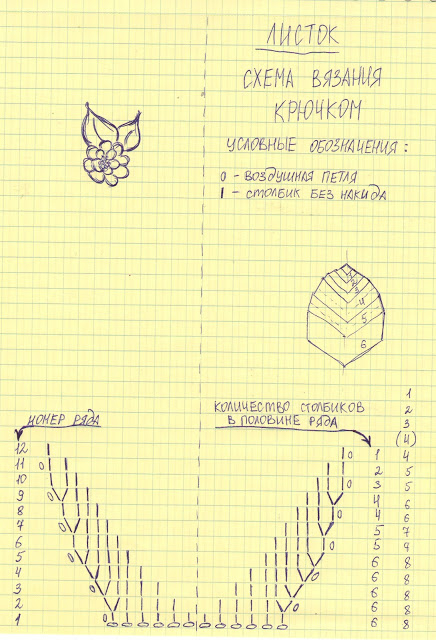 ЛИСТОК
СХЕМА ВЯЗАНИЯ
КРЮЧКОМ
УСЛОВНЫЕ ОБОЗНАЧЕНИЯ:
0 - ВОЗДУШНАЯ ПЕТЛЯ
I - СТОЛБИК БЕЗ НАКИДА
4
5
6
НОМЕР РЯДА
КОЛИЧЕСТВО СТОЛБИКОВ
В ПОЛОВИНЕ РЯДА
1
2
3
(4)
12 1 4
11 2 5
10 3 5
9 4 6
8 4 6
7 5 7
6 5 7
5 6 8
4 6 8
3 6 8
2 6 8
1 6 8